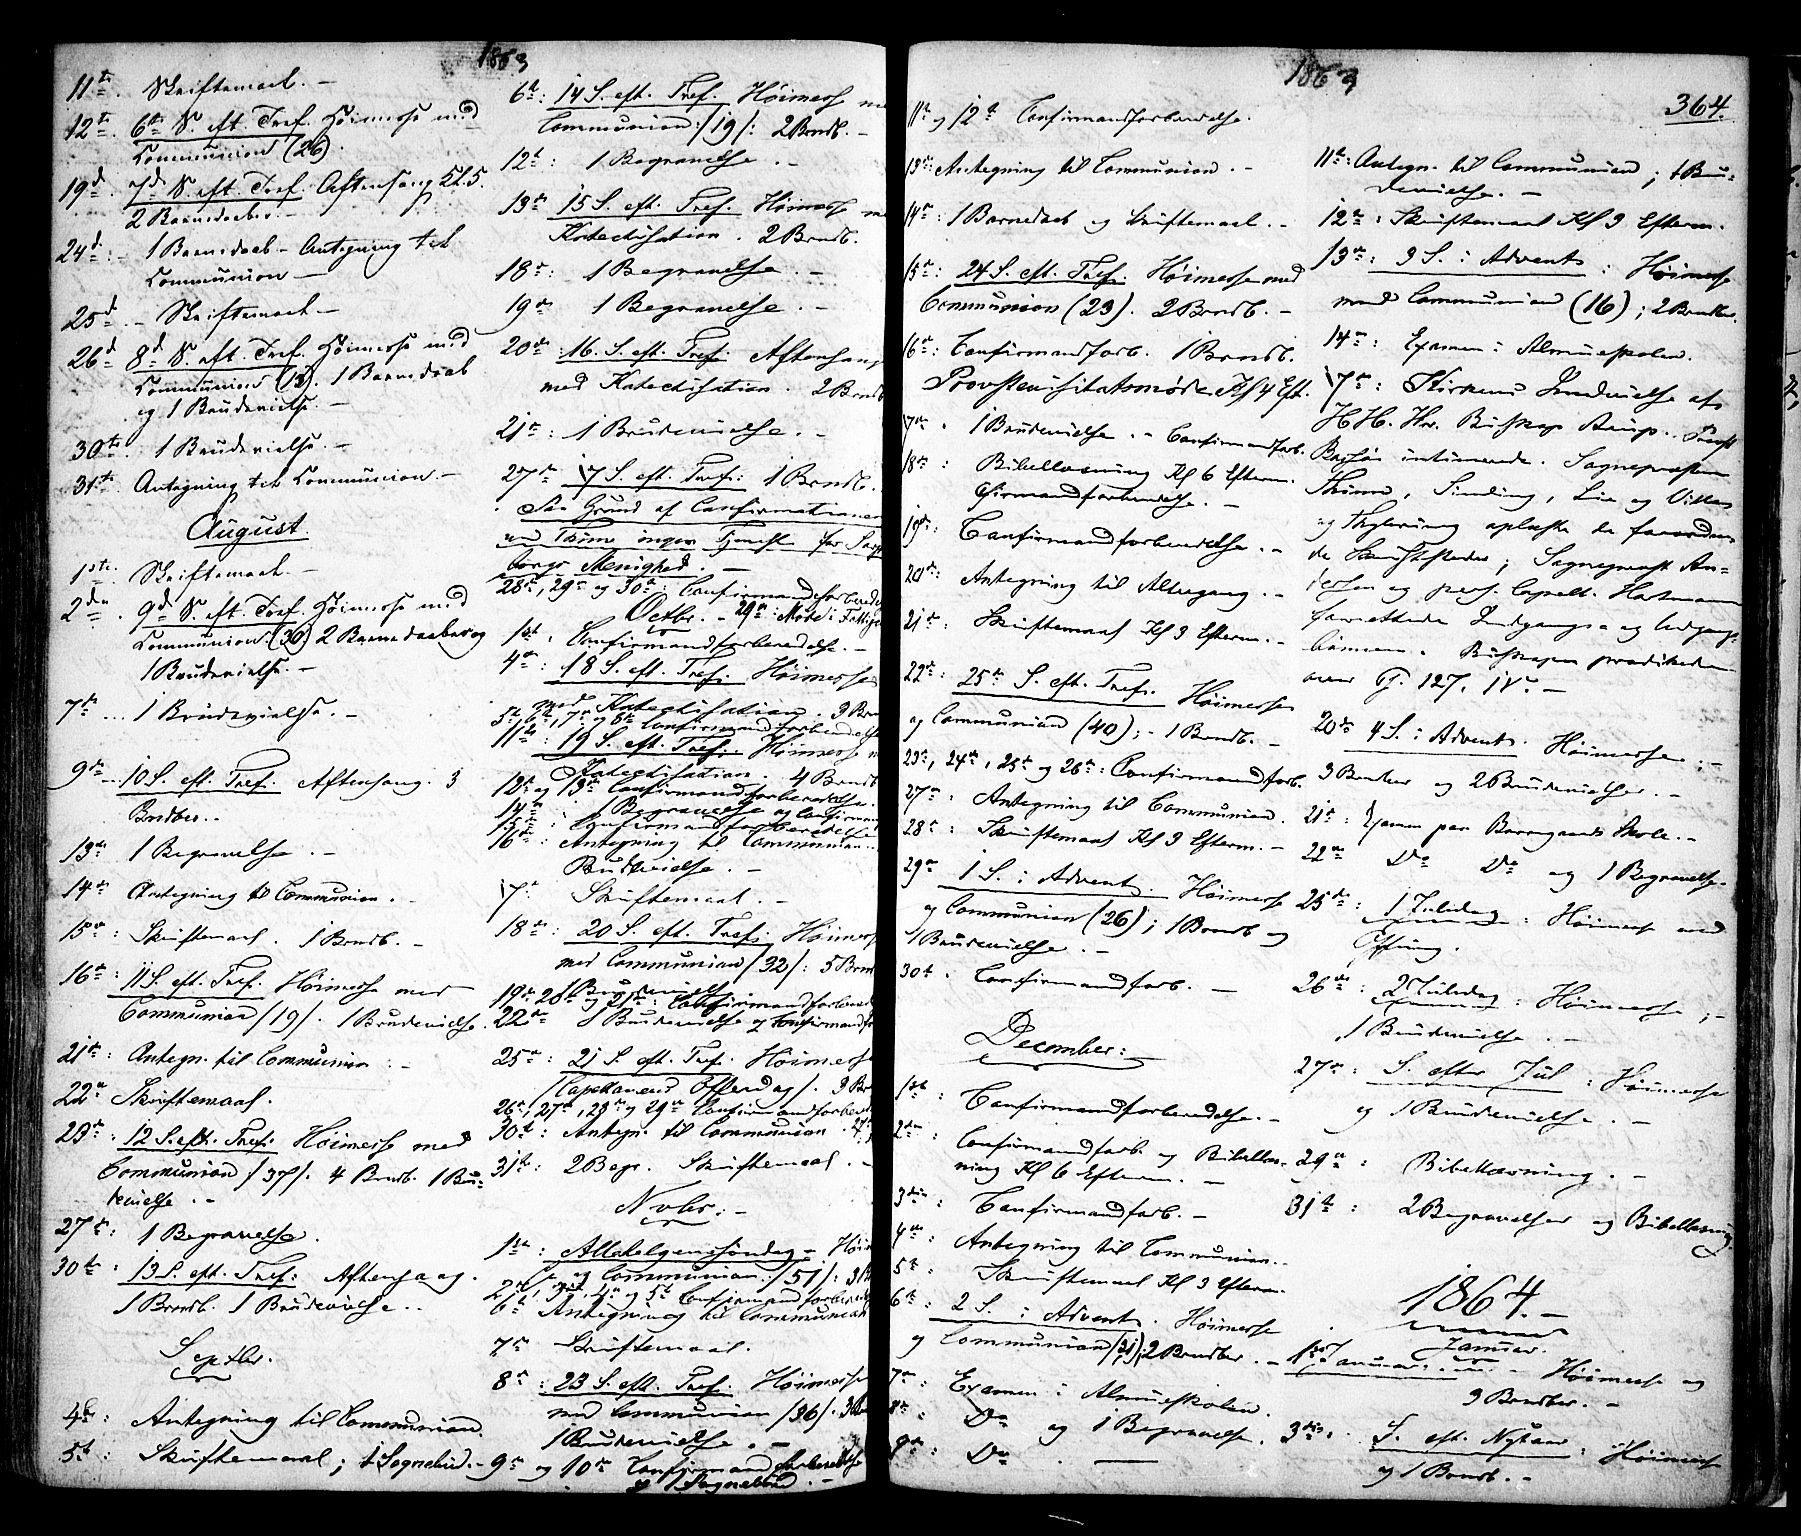 1863
11te. Skriftemaal. –
12te. 6te S. eft. Tref. Høimesse med
Communion (26).
19d. 7d S. eft. Tref. Aftensang Kl. 5.
2 Barnedaaber. –
24d. – 1 Barnedaab – Antegning til
Communion –
25d. – Skriftemaal –
26d 8d S. eft. Tref. Høimesse med
Communion (13). 1 Barnedaab
og 1 Brudevielse. –
30te. 1 Brudevielse. –
31te. Antegning til Communion –
August.
1ste. Skriftemaal. –
2den. 9d S. eft. Tref. Høimesse med
Communion (30) 2 Barnedaaber og
1 Brudevielse. –
7de ... 1 Brudevielse. –
9de ... 10 S. eft. Tref. Aftensang. 3
Brndber. –
13de 1 Begravelse. –
14de Antegning til Communion. –
15de. Skriftemaal. 1 Brndb. –
16de: 11 S. eft. Tref. Høimesse med
Communion /19/. 1 Brudevielse.
21de: Antegn. til Communion –
22de Skriftemaal.
23de: 12 S. eft. Tref. Høimesse med
Communion /37/. 4 Brndb. 1 Bru-
devielse. –
27de: 1 Begravelse.
30te: 13 S. eft. Tref: Aftensang.
1 Brndb. 1 Brudevielse. –
Septbr.
4de: Antegning til Communion.
5te: Skriftemaal; 1 Sognebud. –
6te: 14 S. eft. Tref. Høimesse m
Communion: /19/: 2 Brndb. –
12te: 1 Begravelse. –
13de 15 S. eft. Tref. Høimess m
Katechisation. 2 Brndb.
18de: 1 Begravelse. –
19de 1 Begravelse. –
20de: 16. S. eft. Tref. Aftensang
med Katechisation. 2 Brndb
21de: 1 Brudevielse. –
27de 17 S. eft. Tref: 1 Brndb.
Paa Grund af Confirmationen
ved Thune ingen Tjeneste for Sarps
borgs Menighed. –
28de, 29de og 30te: Confirmandforbered
Octbr. – 29de: Møde i Fattig
1ste: Confirmandforberedelse. –
4de: 18 S. eft. Tref. Høimesse
med Katechisation. 3 Brn
5te, 6te, 7de og 8de Confirmandforberedelse
11te: 19 S. eft. Tref: Høimesse m
Katechisation. 4 Brndb
12te og 13de Confirmandforberedelse.
14de: 1 Begravelse og Confirman
15de: Confirmandforberedelse
16de: Antegning til Communion. –
Brudevielse. –
17de Skriftemaal. –
18de: 20 S. eft. Tref: Høimess
med Communion /32/: 5 Brnd
1 Brudevielse
19de 20de og 21de: Confirmandforbered
22de 1 Brudevielse og Confirmandf
25de: 21 S. eft. Tref. Høimesse
/Capellanens Offerdag/. 3 Br
26de, 27de, 28de og 29de Confirmandforbered
30te: Antegn. til Communion.
31te: 2 Begr. Skriftemaal. –
Novbr: –
1ste: Allehelgenssøndag – Høim
og Communion /51/: 3 B
2den, 3die, 4de og 5te Confirmandforbered
6te Antegning til Communion
7de Skriftemaal.
8de: 23 S. eft. Tref: Høimesse
med Communion /36/. 3 B
1 Brudevielse. –
9de og 10de Confirmandforberedelse
og 1 Sognebud. –
1863
364.
11te og 12te Confirmandforberedelse.
13de: Antegning til Communion. –
14de: 1 Barnedaab og Skriftemaal. –
15de: 24 S. eft. Tref. Høimesse med
Communion (23). 2 Brndb. –
16de: Confirmandforb. 1 Brndb.
Provstevisitatsmøde Kl 4 Eft.
17de. 1 Brudevielse. – Confirmandforb.
18de: Bibellæsning Kl 6 Efterm.
Cfirmandforberedelse. –
19de: Confirmandforberedelse. –
20de: Antegning til Altergang. –
21de: Skriftemaal Kl 3 Efterm. –
22de: 25de S. eft. Tref. Høimesse
og Communion (40); – 1 Brndb. –
23de, 24de, 25de og 26de: Confirmandforb.
27de: Antegning til Communion.
28de: Skriftemaal Kl 3 Efterm. –
29de 1 S. i Advent. Høimesse
og Communion (26); 1 Brndb og
1 Brudevielse. –
30te. Confirmandforb. –
December:
1ste Confirmandforberedelse. –
2den: Confirmandforb. og Bibellæs-
ning Kl 6 Efterm. –
3die: Confirmandforb. –
4de: Antegning til Communion. –
5te: Skriftemaal Kl 3 Efterm.
6te: 2 S. i Advent. Høimesse
og Communion (21); 2 Brndber. –
7de: Examen i Almueskolen.
8de: Do og 1 Begravelse.
9de: Do. –
11te: Antegn. til Communion; 1 Bru-
devielse. –
12te: Skriftemaal Kl 3 Efterm.
13de: 3 S. i Advent: Høimesse
med Communion (16); 2 Brndber.
14de: Examen i Almueskolen.
17de: Kirkens Indvielse af
H.H. Hr. Biskop Arup. Provst
intimerede. Sognepræsten
Thune, Sinding, Lie og Vil
og oplæste de forordne-
de Skriftsteder; Sognepræst An-
dersen og pers. Capell. Hartmann
forrettede Indgangs- og Udgangs-
bønnen. Biskopen prædikede
over Ψ. 127. 1 V. –
20de 4 S. i Advent. Høimesse; –
3 Brnber og 2 Brudevielser. –
21de: Examen paa Borregaards Skole. –
22de Do Do og 1 Begravelse
25de: 1 Juledag: Høimesse med
Offring.
26de: 2 Juledag: Høimesse; –
1 Brudevielse. –
27de: S. efter Jul: Høimesse
og 1 Brudevielse. –
29de: Bibellæsning. –
31te: 2 Begravelser og Bibellæsning
1864. –
Januar.
1ste Januar: – Høimesse og
3 Brndber. –
3die: S. eft. Nytaar: Høimesse
og 1 Brndb. –